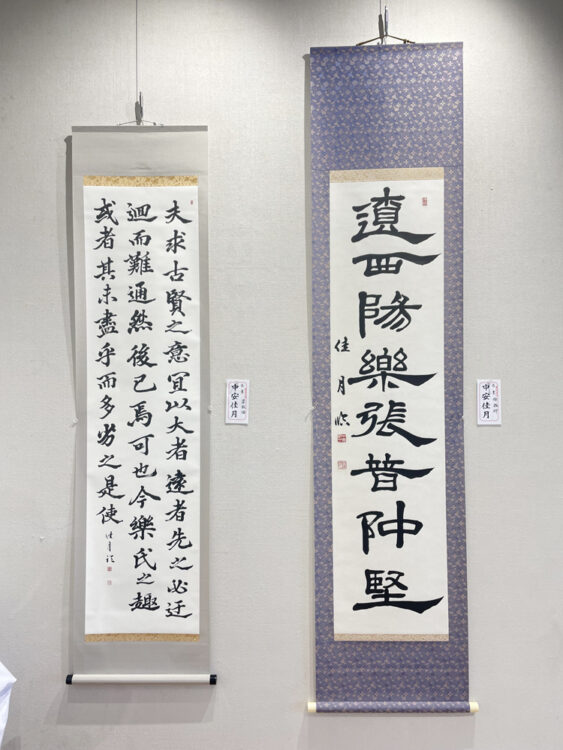 夫求古賢之意宜以大者遠者先之必迂
迴而難通然後已焉可也今樂氏之趣
或者其未盡乎而多劣之是使
佳月臨
申安佳月
遺西陽樂張普仲堅
佳月臨
申安佳月